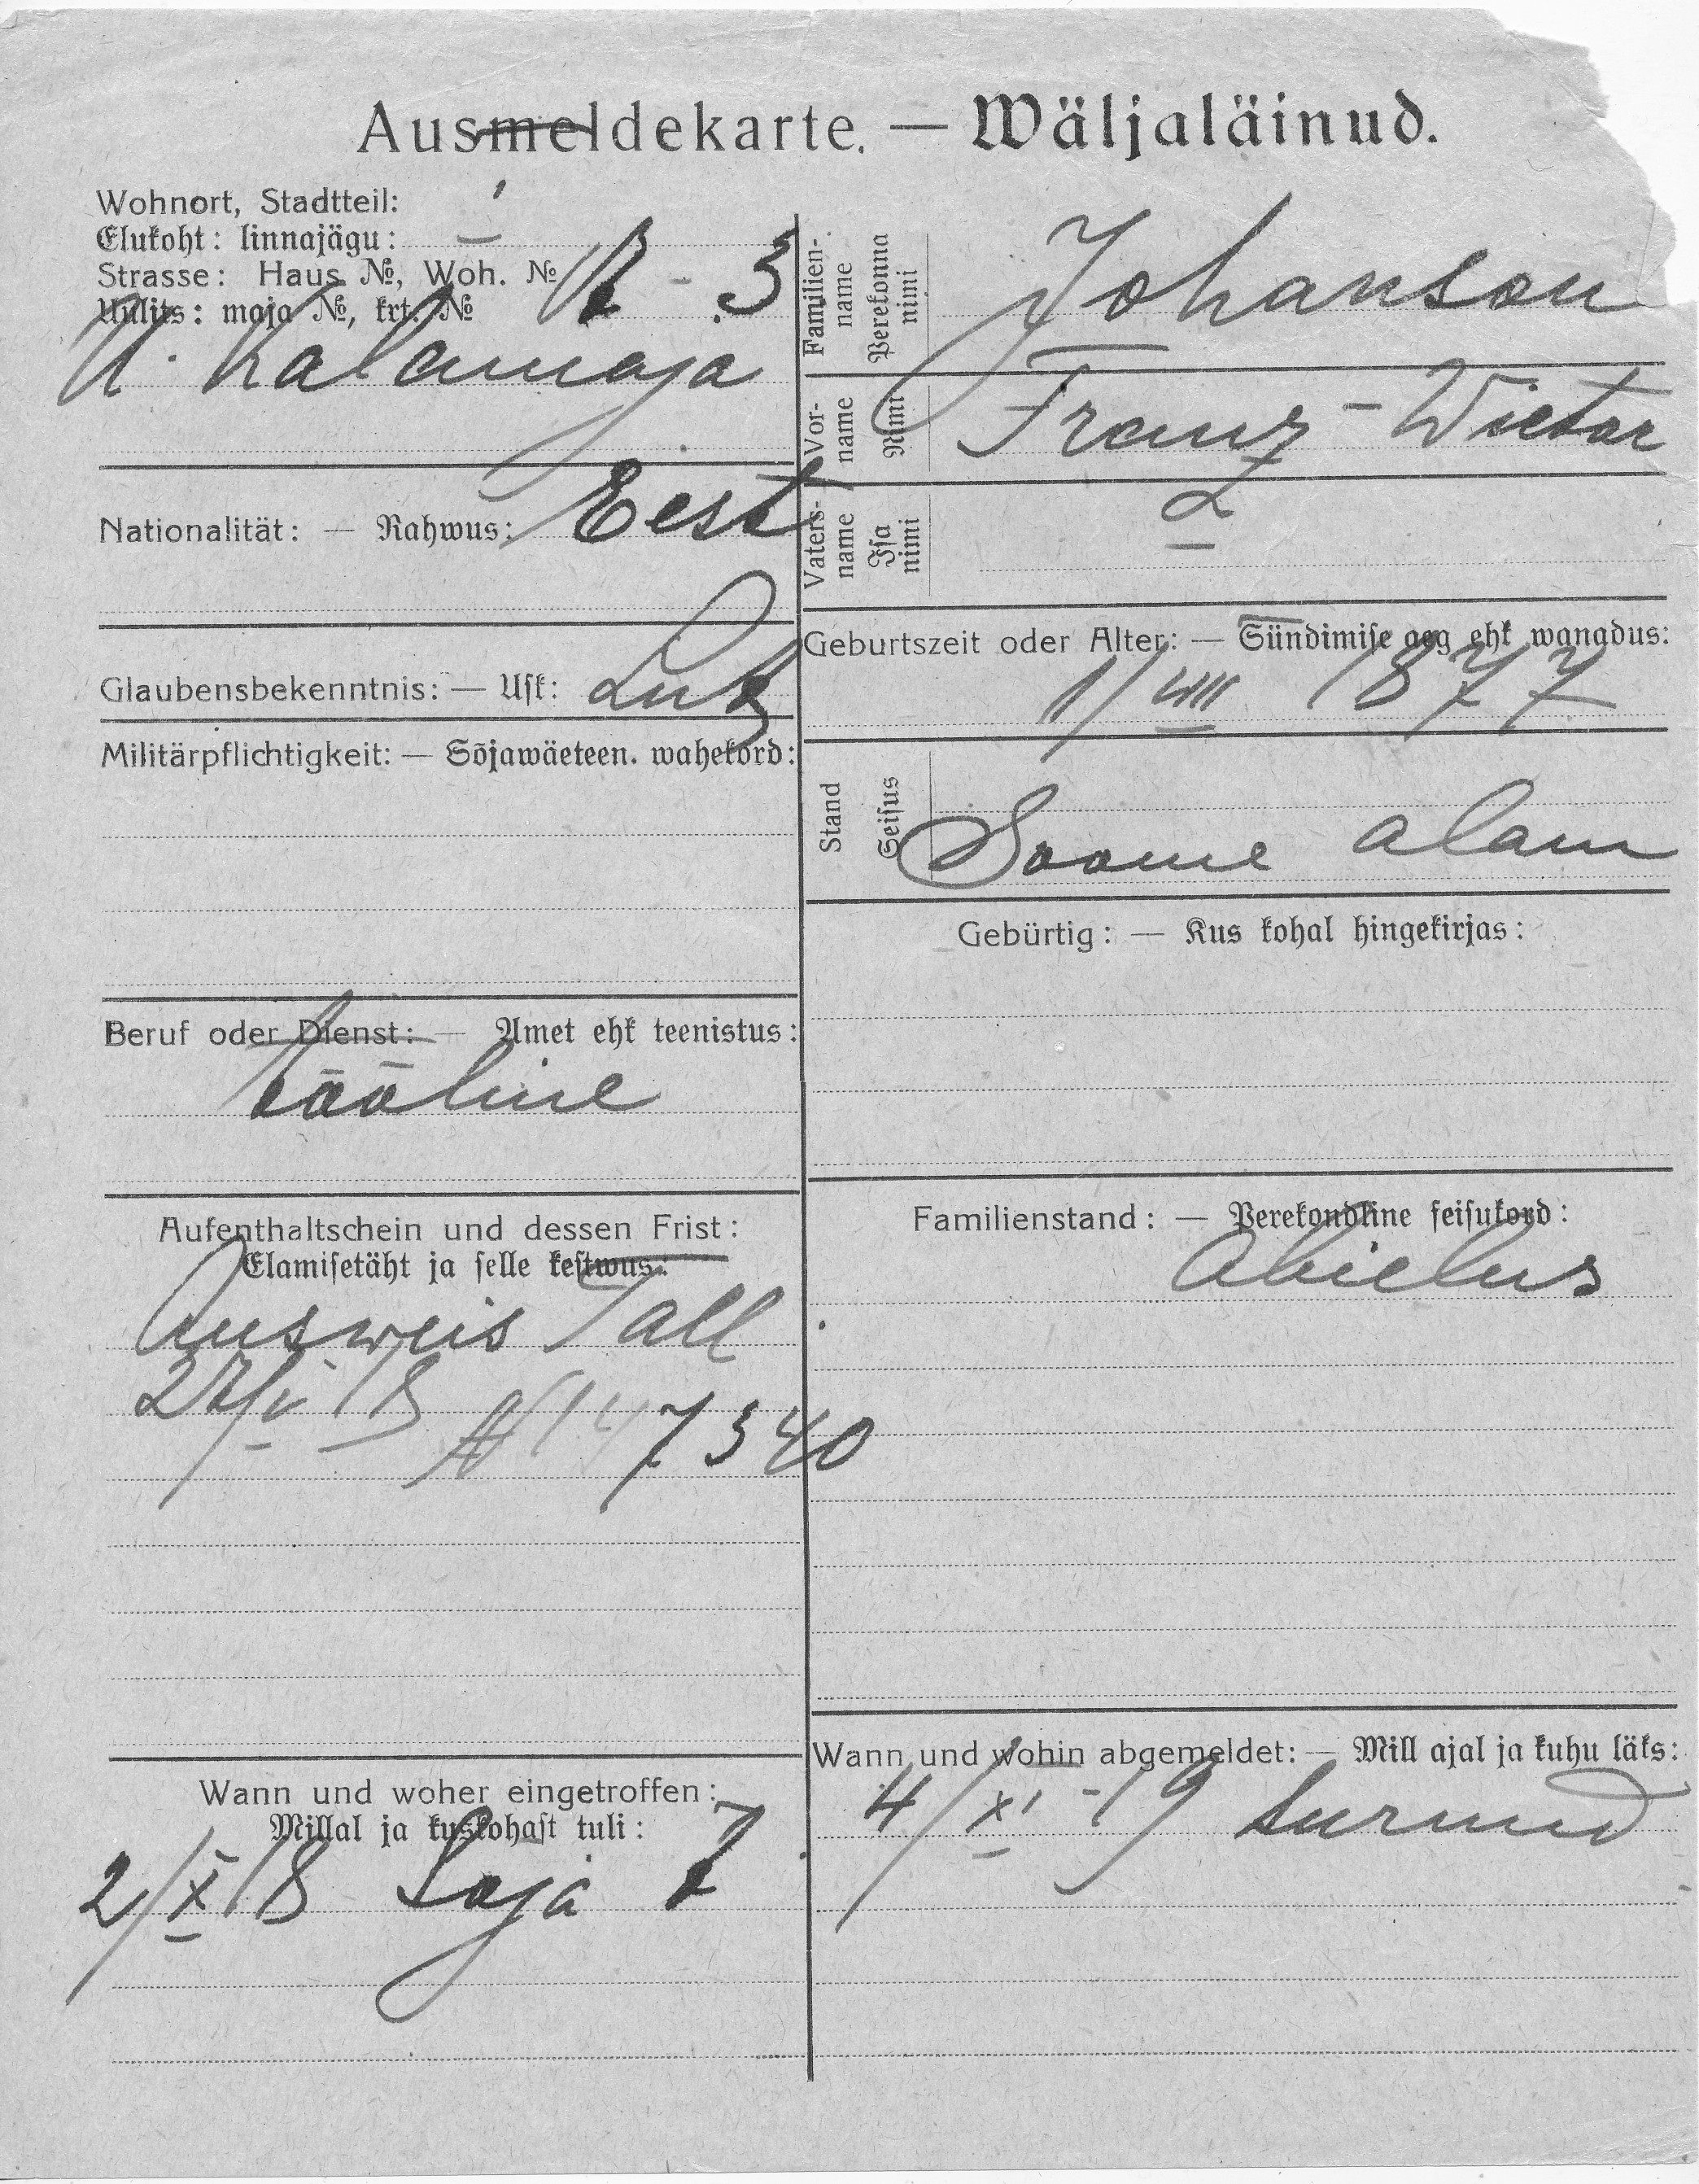 Ausmeldekarte. — Wäljaläinud.
Wohnort, Stadtteil:
Elukoht: linnajägu:
Strasse: Haus №, Woh. №
Uulits: maja №, krt. №
- 3
U. Kalamaja
Nationalität: — Rahwus: Eest
Glaubensbekenntnis: — Usk: Lut
Militärpflichtigkeit: — Sõjawäeteen. wahekord:
Beruf oder Dienst: — Amet ehk teenistus:
tööline
Aufenthaltschein und dessen Frist:
Elamisetäht ja selle kestwus:
Ausweis Tall
18 № 147340
Wann und woher eingetroffen:
Millal ja kuskohast tuli:
2/X 18 Soja 7
Familien-name Perekonna nimi Johanson
Vor-name Nimi Franz-Victor
Vaters-name Isa nimi
Geburtszeit oder Alter: — Sündimise aeg ehk wanadus:
1/VIII 1877
Stand Seisus Soome alam
Gebürtig: — Kus kohal hingekirjas:
Familienstand: — Perekondline seisukord:
Abielus
Wann und wohin abgemeldet: — Mill ajal ja kuhu läks:
4/XI -19 surnud